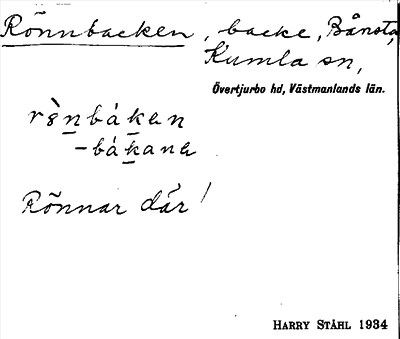 Rönnbacken, backe, Bånsta,
Kumla sn,
Övertjurbo hd, Västmanlands län.
bákan
-bákana
Rönnar där!
HARRY STÅHL 1934